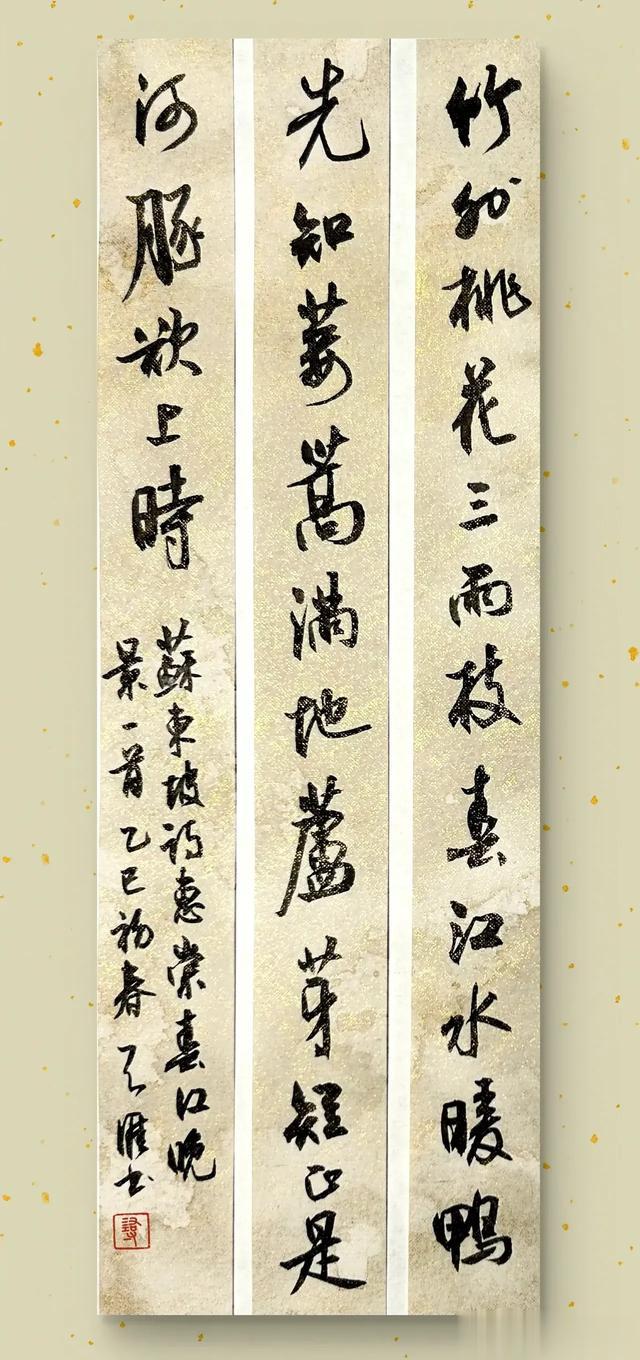 竹外桃花三兩枝春江水暖鴨
先知蔞蒿滿地蘆芽短正是
河豚欲上時
蘇東坡詩惠崇春江晚
景一首乙巳初春天涯书